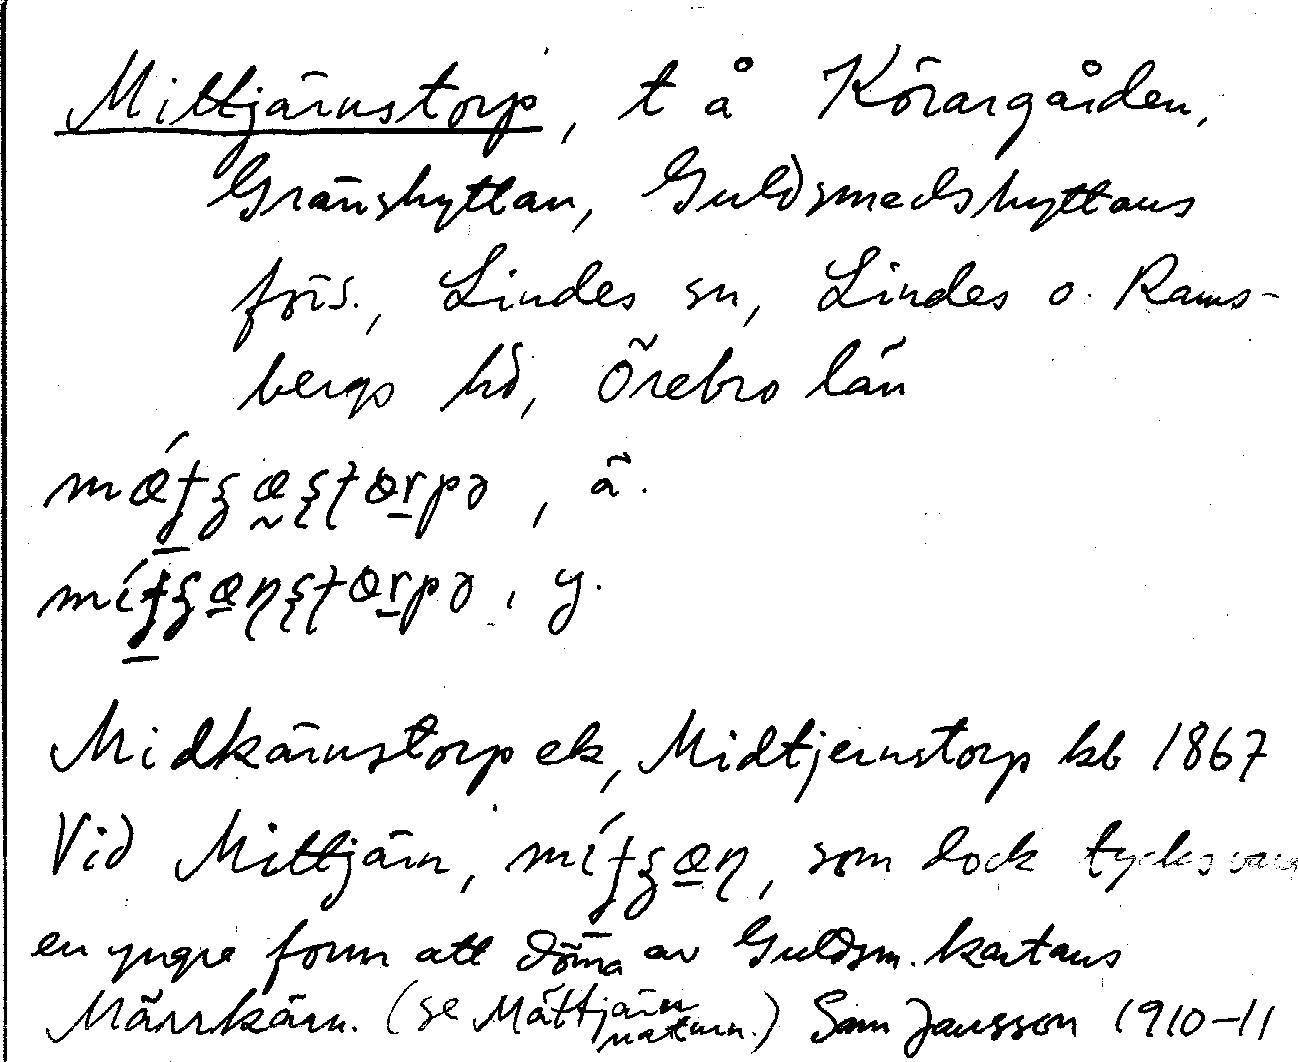 Mittjärnstorp, t å Körargården,
Gränshyttan, Guldsmedshyttans
förs., Lindes sn, Lindes o. Rams-
bergs hd, Örebro län
, ä.
, y.
Midkärnstorp ek, Midtjernstorp kb 1867
Vid Mittjärn, som dock tycks vara
en yngre form att döma av Guldsm. kartans
Märrkärn. (se Mättjärn naturn.) Sam Jansson 1910-11